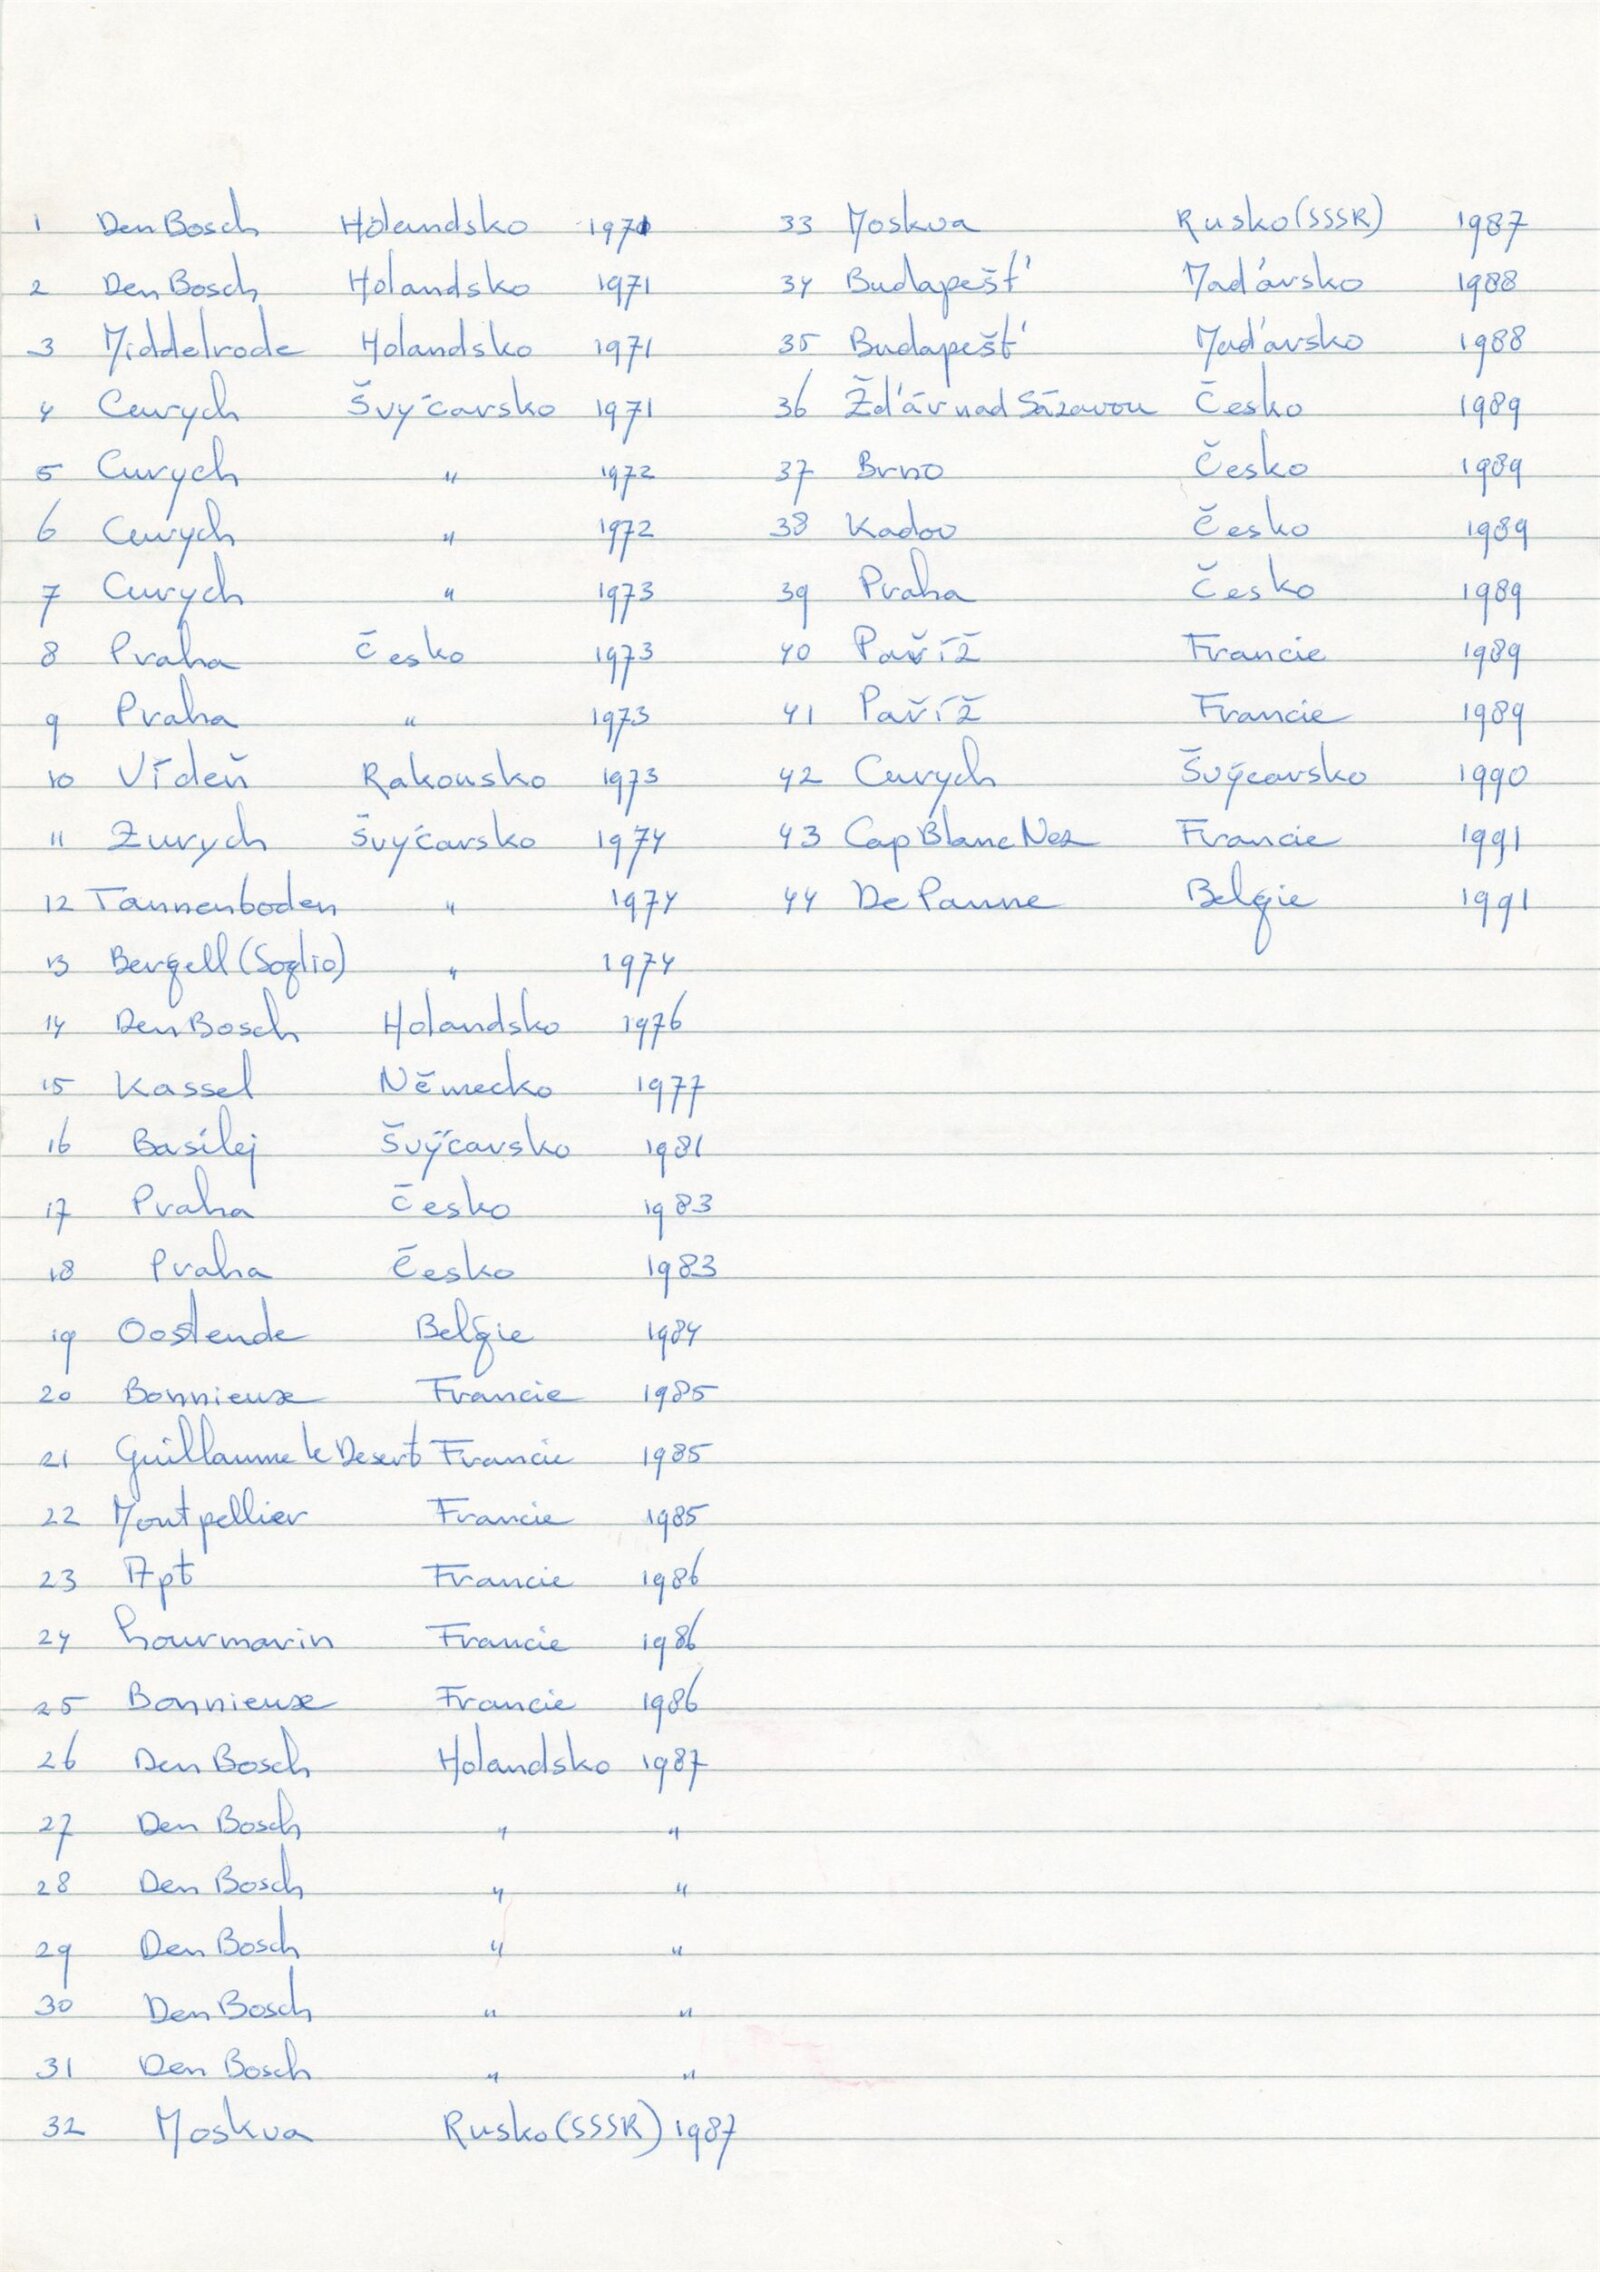 1 Den Bosch Holandsko 1971
2 Den Bosch Holandsko 1971
3 Middelrode Holandsko 1971
4 Curych Švýcarsko 1971
5 Curych " 1972
6 Curych " 1972
7 Curych " 1973
8 Praha Česko 1973
9 Praha " 1973
10 Vídeň Rakousko 1973
11 Zurych Švýcarsko 1974
12 Tannenboden " 1974
13 Bergell (Soglio) " 1974
14 Den Bosch Holandsko 1976
15 Kassel Německo 1977
16 Basilej Švýcarsko 1981
17 Praha Česko 1983
18 Praha Česko 1983
19 Oostende Belgie 1984
20 Bonnieux Francie 1985
21 Guillaume le Desert Francie 1985
22 Montpellier Francie 1985
23 Apt Francie 1986
24 Lourmarin Francie 1986
25 Bonnieux Francie 1986
26 Den Bosch Holandsko 1987
27 Den Bosch " "
28 Den Bosch " "
29 Den Bosch " "
30 Den Bosch " "
31 Den Bosch " "
32 Moskva Rusko (SSSR) 1987
33 Moskva Rusko (SSSR) 1987
34 Budapešť Maďarsko 1988
35 Budapešť Maďarsko 1988
36 Žďár nad Sázavou Česko 1989
37 Brno Česko 1989
38 Kadov Česko 1989
39 Praha Česko 1989
40 Paříž Francie 1989
41 Paříž Francie 1989
42 Curych Švýcarsko 1990
43 Cap Blanc Nez Francie 1991
44 De Panne Belgie 1991